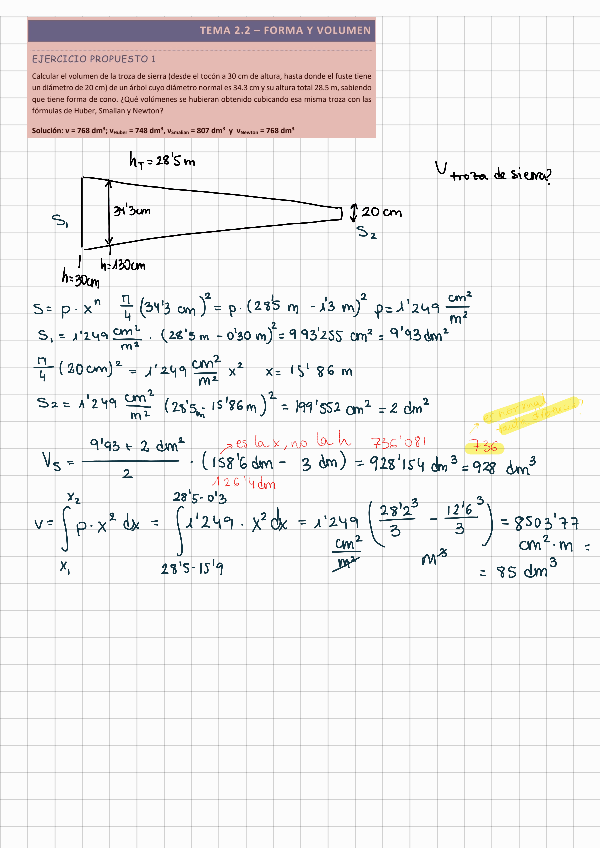 TEMA 2.2 – FORMA Y VOLUMEN
EJERCICIO PROPUESTO 1
Calcular el volumen de la troza de sierra (desde el tocón a 30 cm de altura, hasta donde el fuste tiene
un diámetro de 20 cm) de un árbol cuyo diámetro normal es 34.3 cm y su altura total 28.5 m, sabiendo
que tiene forma de cono. ¿Qué volúmenes se hubieran obtenido cubicando esa misma troza con las
fórmulas de Huber, Smalian y Newton?
Solución: v = 768 dm³; vHuber = 748 dm³, vSmalian = 807 dm³ y vNewton = 768 dm³
hT = 28'5 m
V troza de sierra?
34'3cm
20 cm
S1
S2
h=30cm
h=130cm
S = p · x^n π/4 (34'3 cm)² = p · (28'5 m - 1'3 m)² p = 1'249 cm²/m²
S1 = 1'249 cm²/m² · (28'5 m - 0'30 m)² = 993'255 cm² = 9'93 dm²
π/4 (20cm)² = 1'249 cm²/m² x² x = 15'86 m
S2 = 1'249 cm²/m² (28'5m - 15'86 m)² = 199'552 cm² = 2 dm²
es la x, no la h 736'081 736
Vs = (9'93 + 2 dm²)/2 · (158'6 dm - 3 dm) = 928'154 dm³ = 928 dm³
126'4 dm
x2 28'5-0'3
v = ∫ p · x² dx = ∫ 1'249 · x² dx = 1'249 (28'2³/3 - 12'6³/3) = 8503'77
x1 28'5-15'9 cm²/m² m³ cm²·m =
= 85 dm³